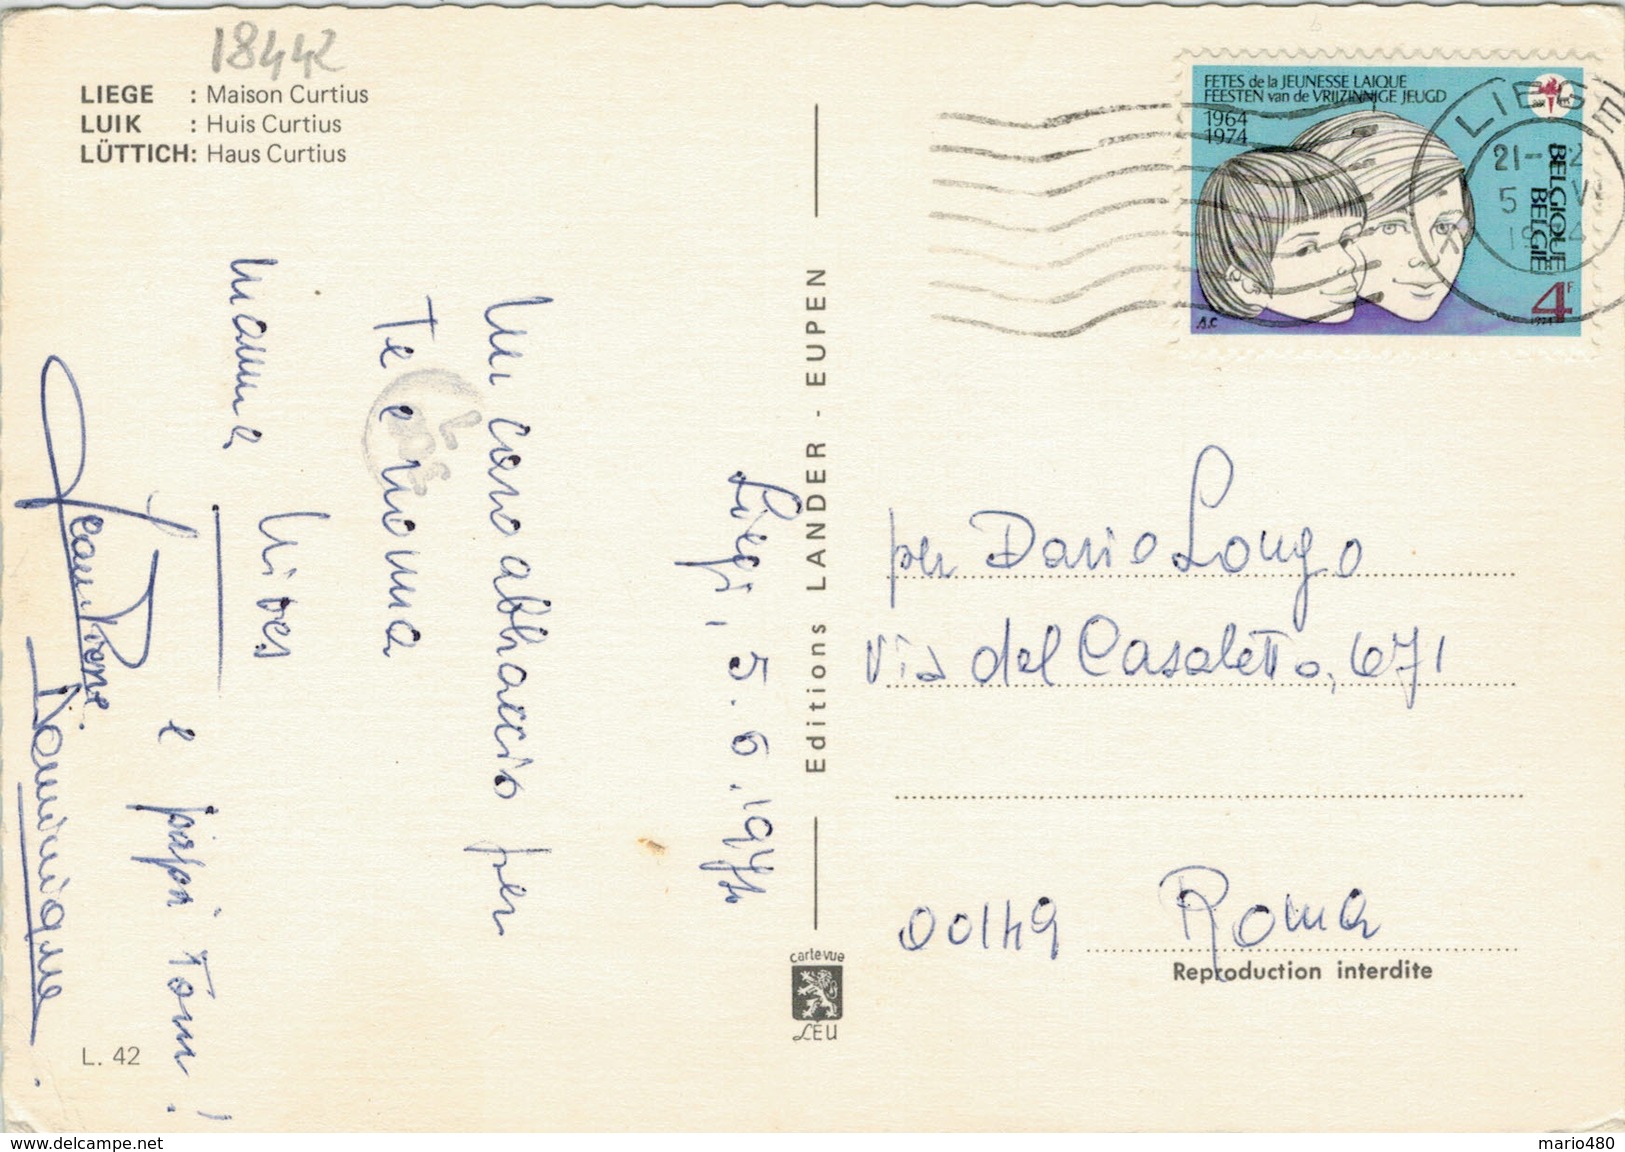 18442
LIEGE : Maison Curtius
LUIK : Huis Curtius
LÜTTICH: Haus Curtius
Liegi, 5.6.1974
Un caro abbraccio per
Te e nonna
mamma
e papà Tom!
Jean Pierre
Dominique.
L. 42
Editions LANDER - EUPEN
cartevue
LÉU
FETES de la JEUNESSE LAIQUE
FEESTEN van de VRIJZINNIGE JEUGD
1964
1974
BELGIQUE
BELGIE
4F
1974
A.C
LIEGE
21-
5 V
per Dario Longo
Via del Casaletto, 671
00149 Roma
Reproduction interdite
www.delcampe.net
mario480